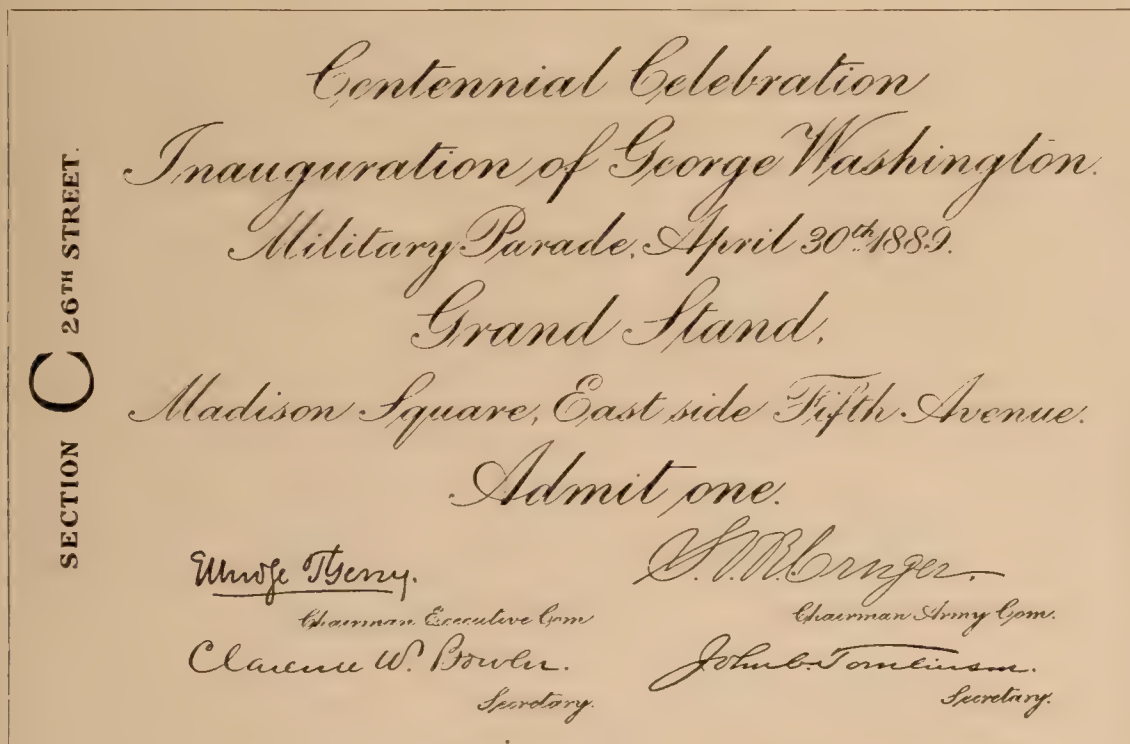 Centennial Celebration
Inauguration of George Washington.
Military Parade, April 30th 1889.
Grand Stand,
Madison Square, East side Fifth Avenue.
Admit one.
SECTION C 26TH STREET.
Elbridge T. Gerry.
Chairman Executive Com
S.V.R. Cruger.
Chairman Army Com.
Clarence W. Bowen.
Secretary.
John C. Tomlinson.
Secretary.